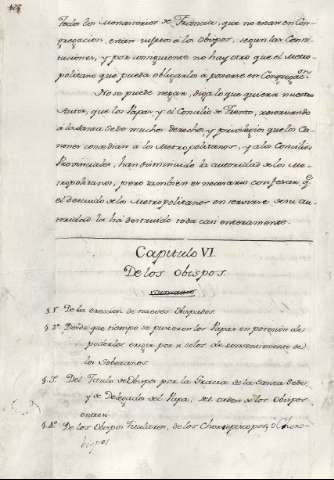 todos los Monasterios de Francia, que no estan en Con-
gregacion, estan sujetos a los Obispos, segun las Consti-
tuciones, y por consiguiente no hay otro que el Metro-
politano que pueda obligarlos a ponerse en Congregac.on
No se puede negar, diga lo que quiera nuestro
Autor, que los Papas y el Concilio de Trento, reservando
a la Santa Sede muchos derechos, y privilegios que los Ca-
nones concedian a los Metropolitanos, y a los Concilios
Provinciales, han disminuido la autoridad de los Me-
tropolitanos, pero tambien es necesario confesar, q.e
el descuido de los Metropolitanos en servirse de su au-
toridad la ha destruido casi enteramente.
Capitulo VI.
De los Obispos.
§ 1.º De la ereccion de nuevos Obispados.
§ 2.º Desde que tiempo se pusieron los Papas en posesion de
poderlos erigir por si solos de consentimiento de
los Soberanos.
§ 3.º Del Titulo de Obispo por la Gracia de la Santa Sede,
y de Delegado del Papa, del orden de los Obispos
§ 4.º De los Obispos Titulares, de los Chorepiscopos,